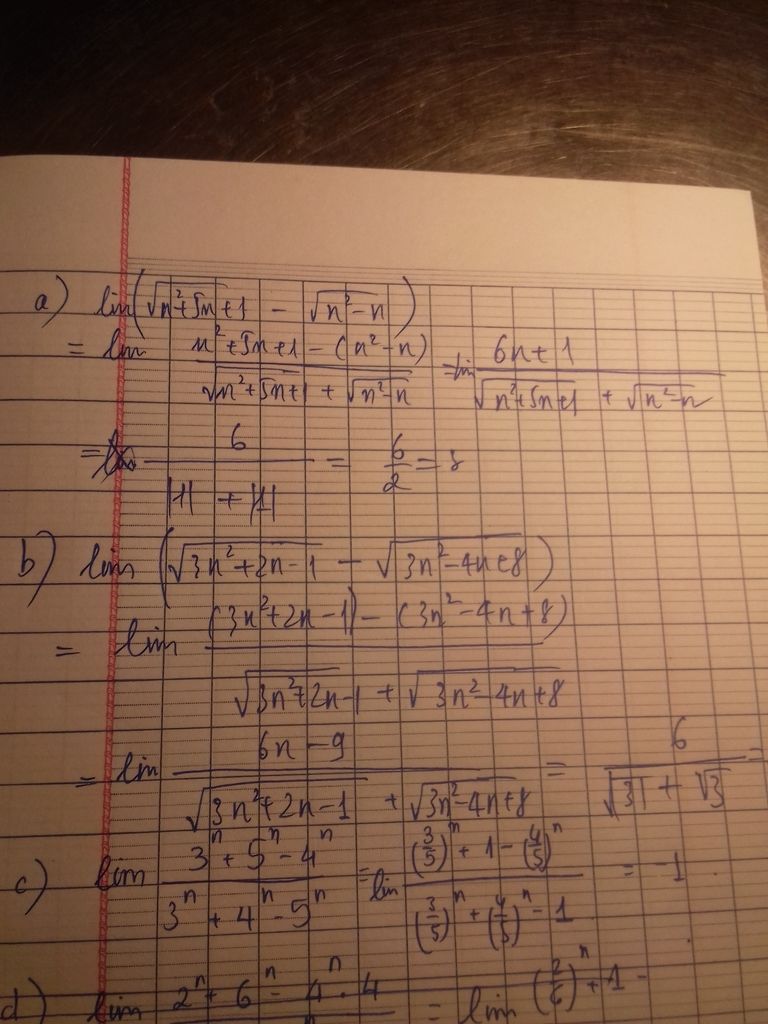 a) lim(√(n²+5n+1) - √(n²-n))
= lim (n²+5n+1-(n²-n))/(√(n²+5n+1) + √(n²-n)) = lim (6n+1)/(√(n²+5n+1) + √(n²-n))
= 6/(√1 + √1) = 6/2 =
b) lim (√(3n²+2n-1) - √(3n²-4n+8))
= lim ((3n²+2n-1)-(3n²-4n+8))/(√(3n²+2n-1) + √(3n²-4n+8))
= lim (6n-9)/(√(3n²+2n-1) + √(3n²-4n+8)) = 6/(√3 + √3) =
c) lim (3ⁿ+5ⁿ-4ⁿ)/(3ⁿ+4ⁿ-5ⁿ) = lim ((3/5)ⁿ+1-(4/5)ⁿ)/((3/5)ⁿ+(4/5)ⁿ-1) = -1
d) lim 2ⁿ+6ⁿ-4ⁿ.4 = lim (2/6)ⁿ+1-